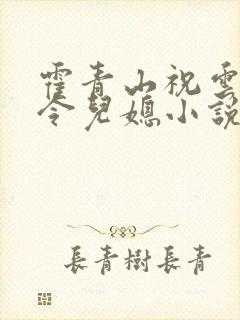 霍青山祝雲
令兒媳小說
長青樹長青